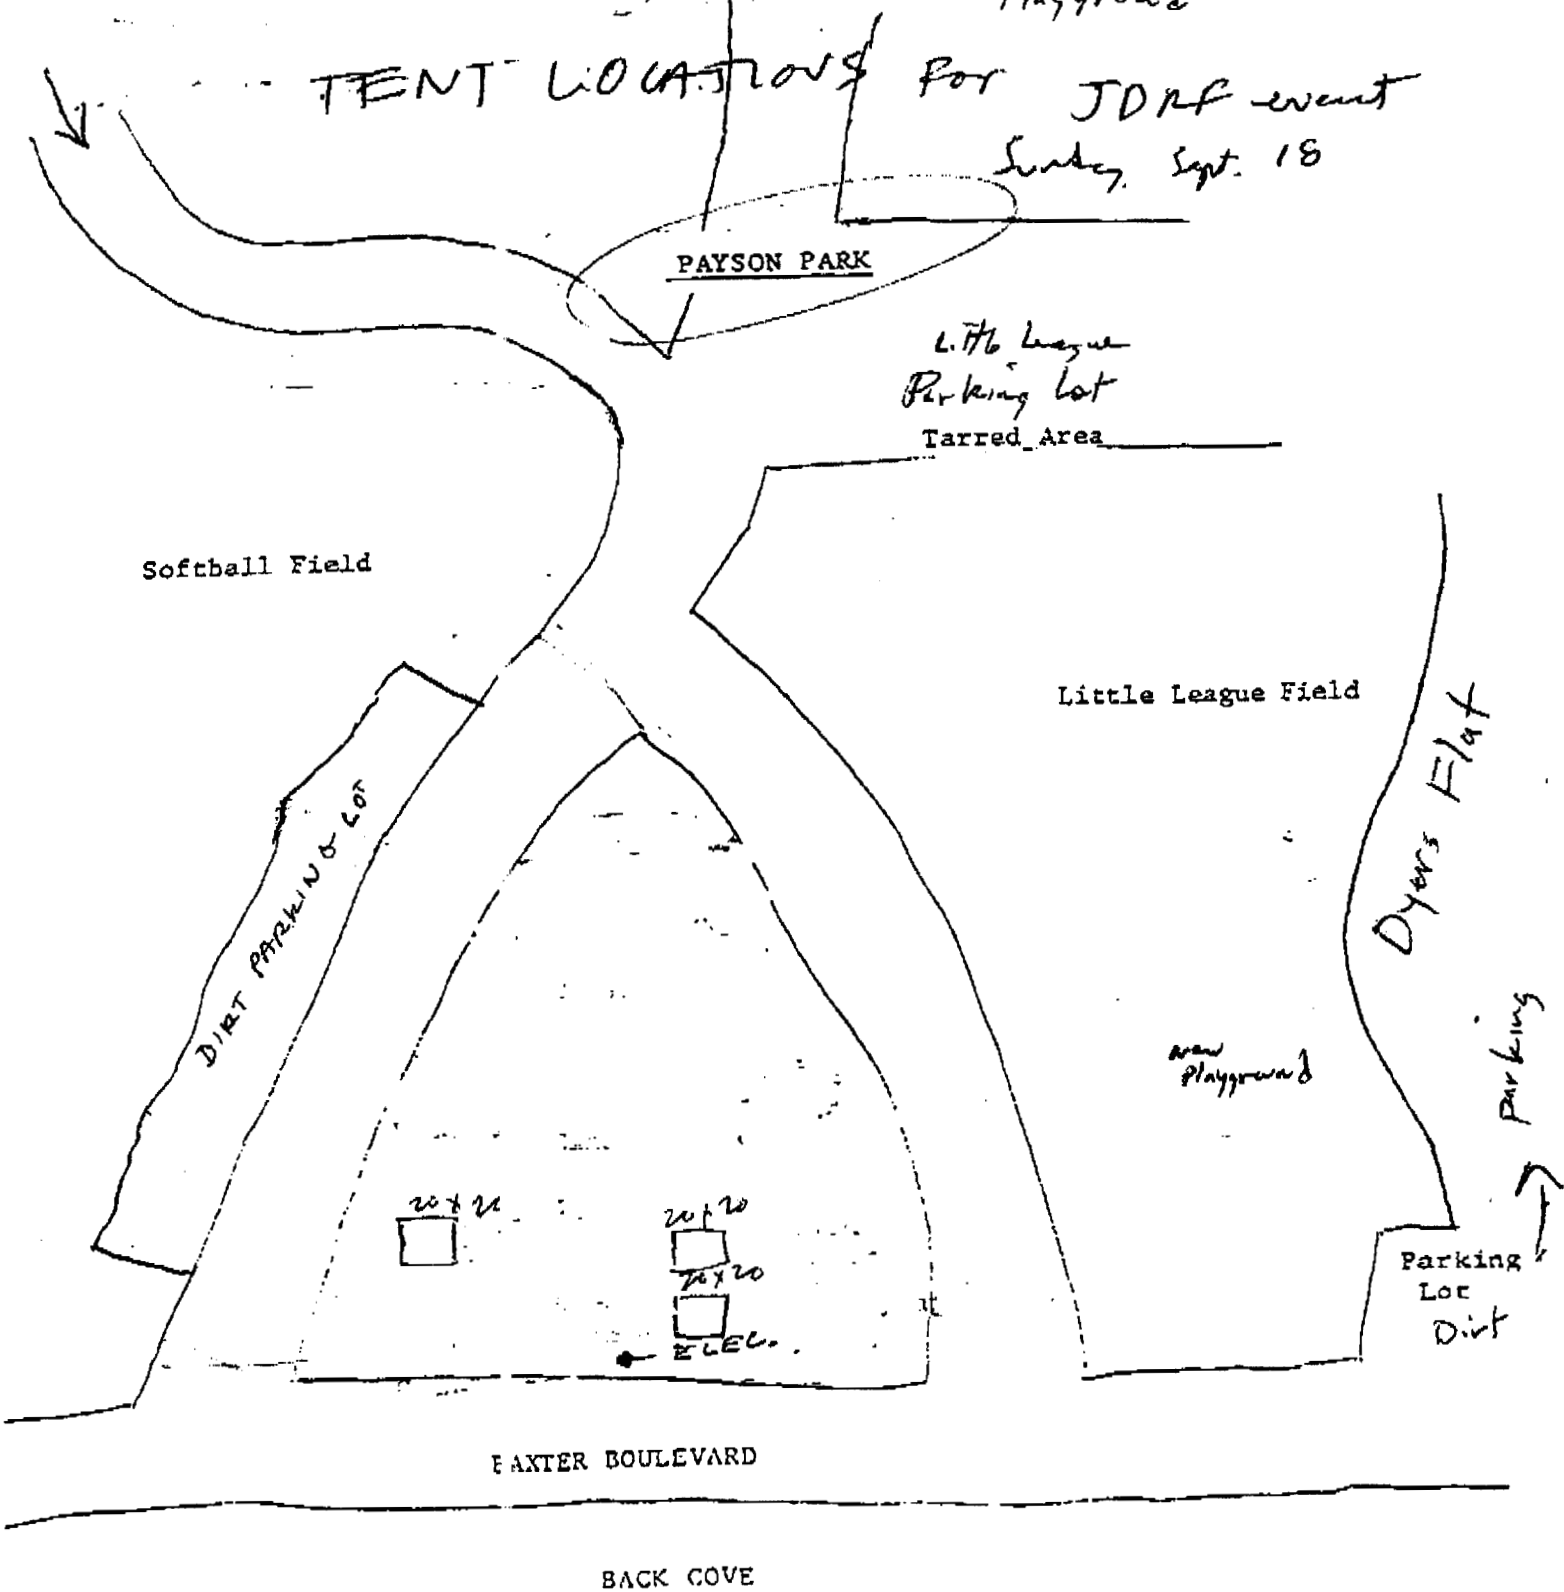 Playground
TENT LOCATIONS for JDRF event
Sunday, Sept. 18
PAYSON PARK
Little League
Parking Lot
Tarred Area
Softball Field
Little League Field
Dyers Flat
DIRT PARKING LOT
new
Playground
Parking
20 x 20
20 x 20
20 x 20
ELEC.
Parking
Lot
Dirt
BAXTER BOULEVARD
BACK COVE